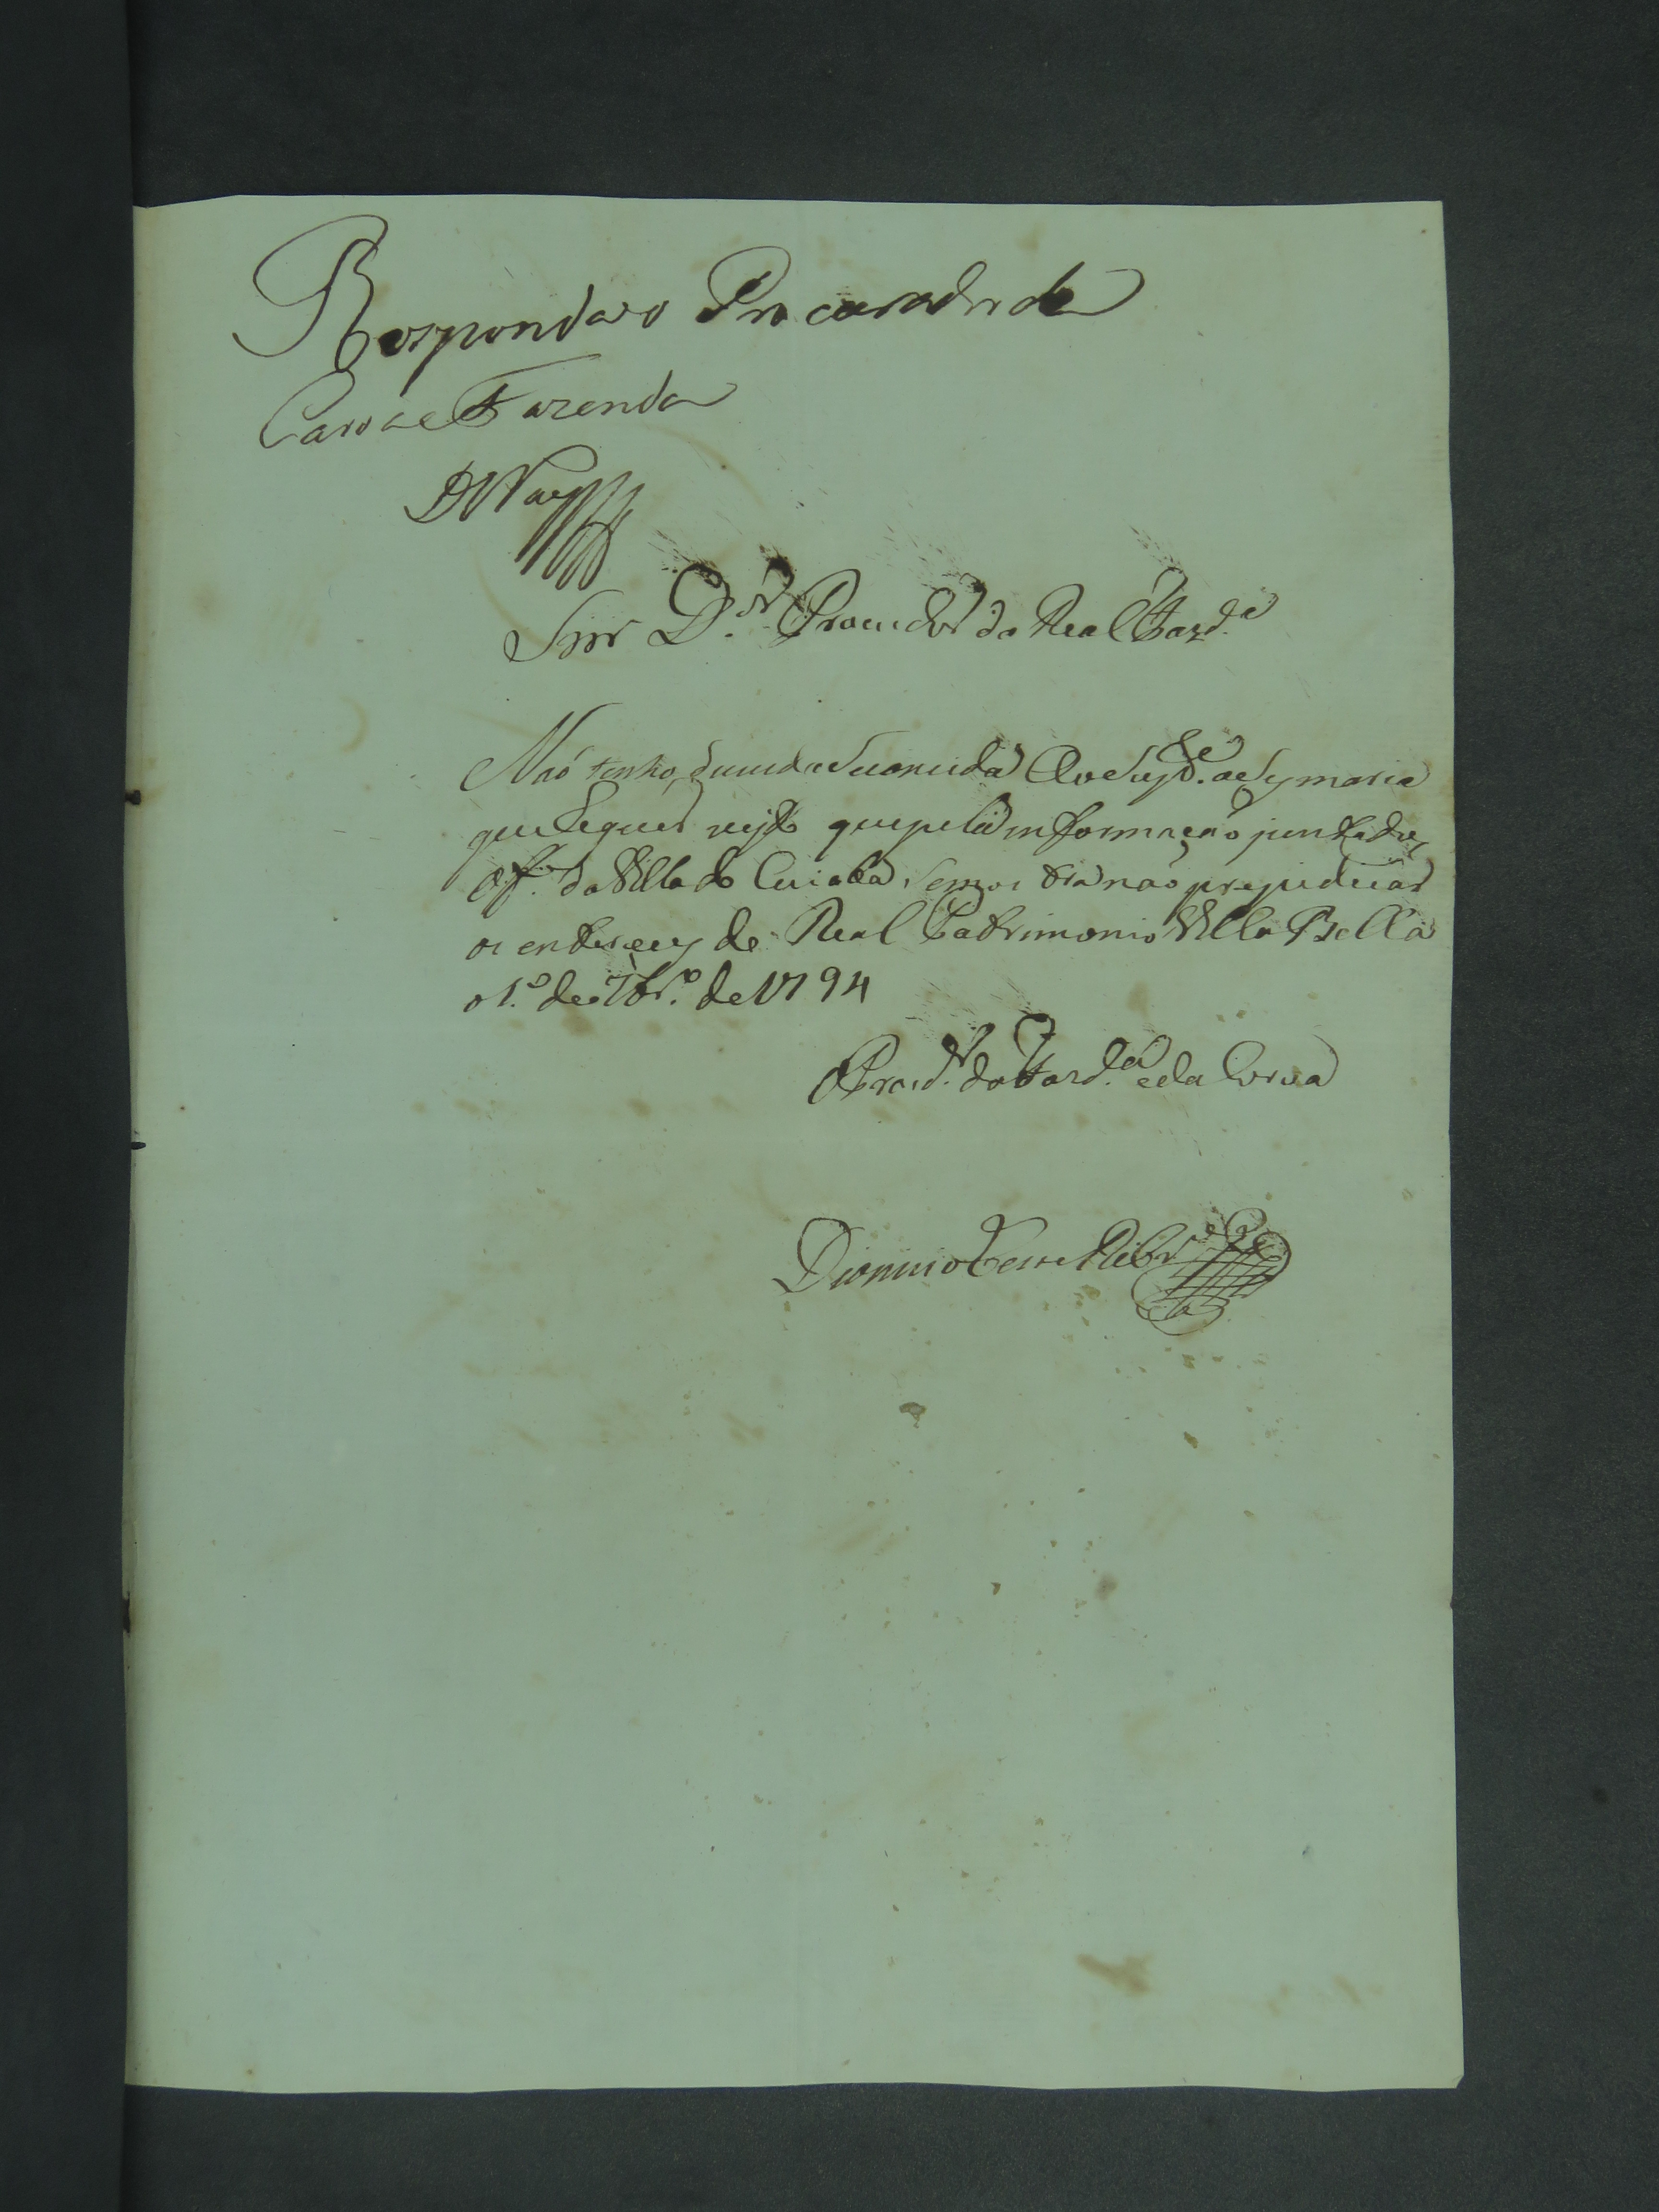 Responda o Procurador da
Caroa e Fazenda
Snr D.or Provedor da Real Fazd.a
Naó tenho duuida Seconsida Ao Sup.te a Sysmaria
que Requer visto que pela informação junta dos
Off.es da Villa do Cuiaba, Se mostra naó prejudicar
os enterecey do Real Patrimonio Villa Bella
o 1.º de 7br.º de 1794
O Procd.r da Fazd.a e da Coroa
Dionisio Ribr.o